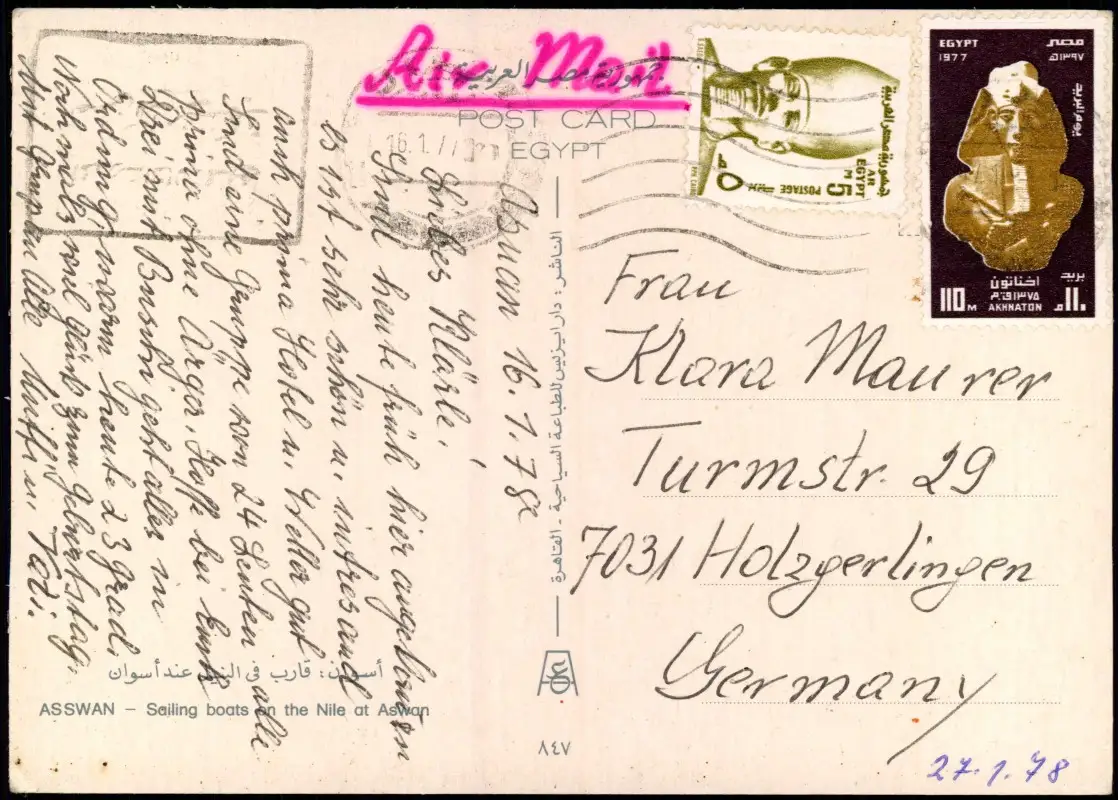 Air Mail
جمهورية مصر العربية
POST CARD
EGYPT
16.1.77
Asuan 16.1.78
Liebes Klärle,
Sind heute früh hier
es ist sehr schön u.
auch prima Hotel u. Wetter gut
Sind eine Gruppe von 24 Leuten alle
prima ohne Ärger. Hoffe bei Euch
mit geht alles in
Ordnung, warm heute 23 Grad.
Nochmals viel Glück zum Geburtstag.
Mit Alle u.
أسوان: قارب فى النيل عند أسوان
ASSWAN – Sailing boats on the Nile at Aswan
الناشر: دار للطباعة السياحية - القاهرة
٨٤٧
جمهورية مصر العربية
AR EGYPT
POSTAGE
5 M
٥ م
EGYPT مصر
1977 ١٣٩٧هـ
يوم البريد
بريد
اخناتون
١٣٧٥ ق.م
AKHNATON
110 M
١١٠ م
Frau
Klara Maurer
Turmstr. 29
7031 Holzgerlingen
Germany
27.1.78